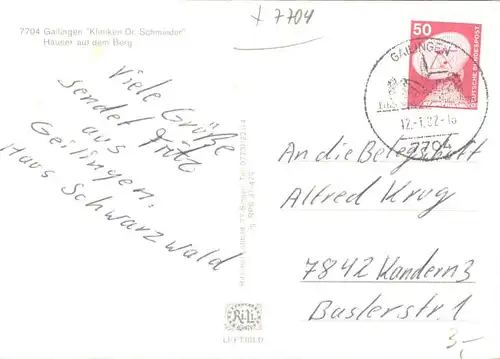 + 7704
7704 Gailingen "Kliniken Dr. Schmieder"
Häuser auf dem Berg
50
DEUTSCHE BUNDESPOST
GAILINGEN
12.-1.82-18
7704
Viele Grüße
sendet Fritz
aus
Geilingen.
Haus Schwarzwald
An die Belegschaft
Alfred Krug
7842 Kandern 3
Baslerstr. 1
3,-
RiLi
LUFTBILD